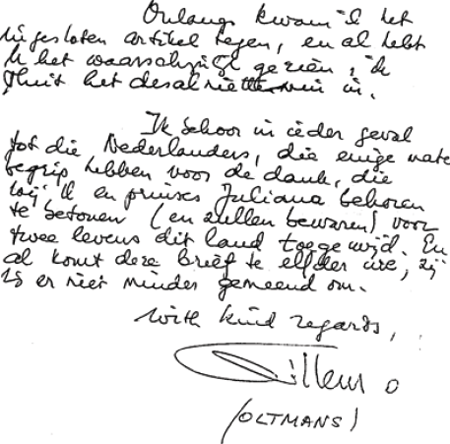 Onlangs kwam ik het
ingesloten artikel tegen, en al hebt
U het waarschijnlijk gezien, ik
sluit het desalniettemin in.
Ik behoor in ieder geval
tot die Nederlanders, die enige mate
begrip hebben voor de dank, die
wij U en prinses Juliana behoren
te betonen (en zullen bewaren) voor
twee levens dit land toegewijd. En
al komt deze brief te elfder ure, zij
is er niet minder gemeend om.
With kind regards,
Willem O
(OLTMANS)